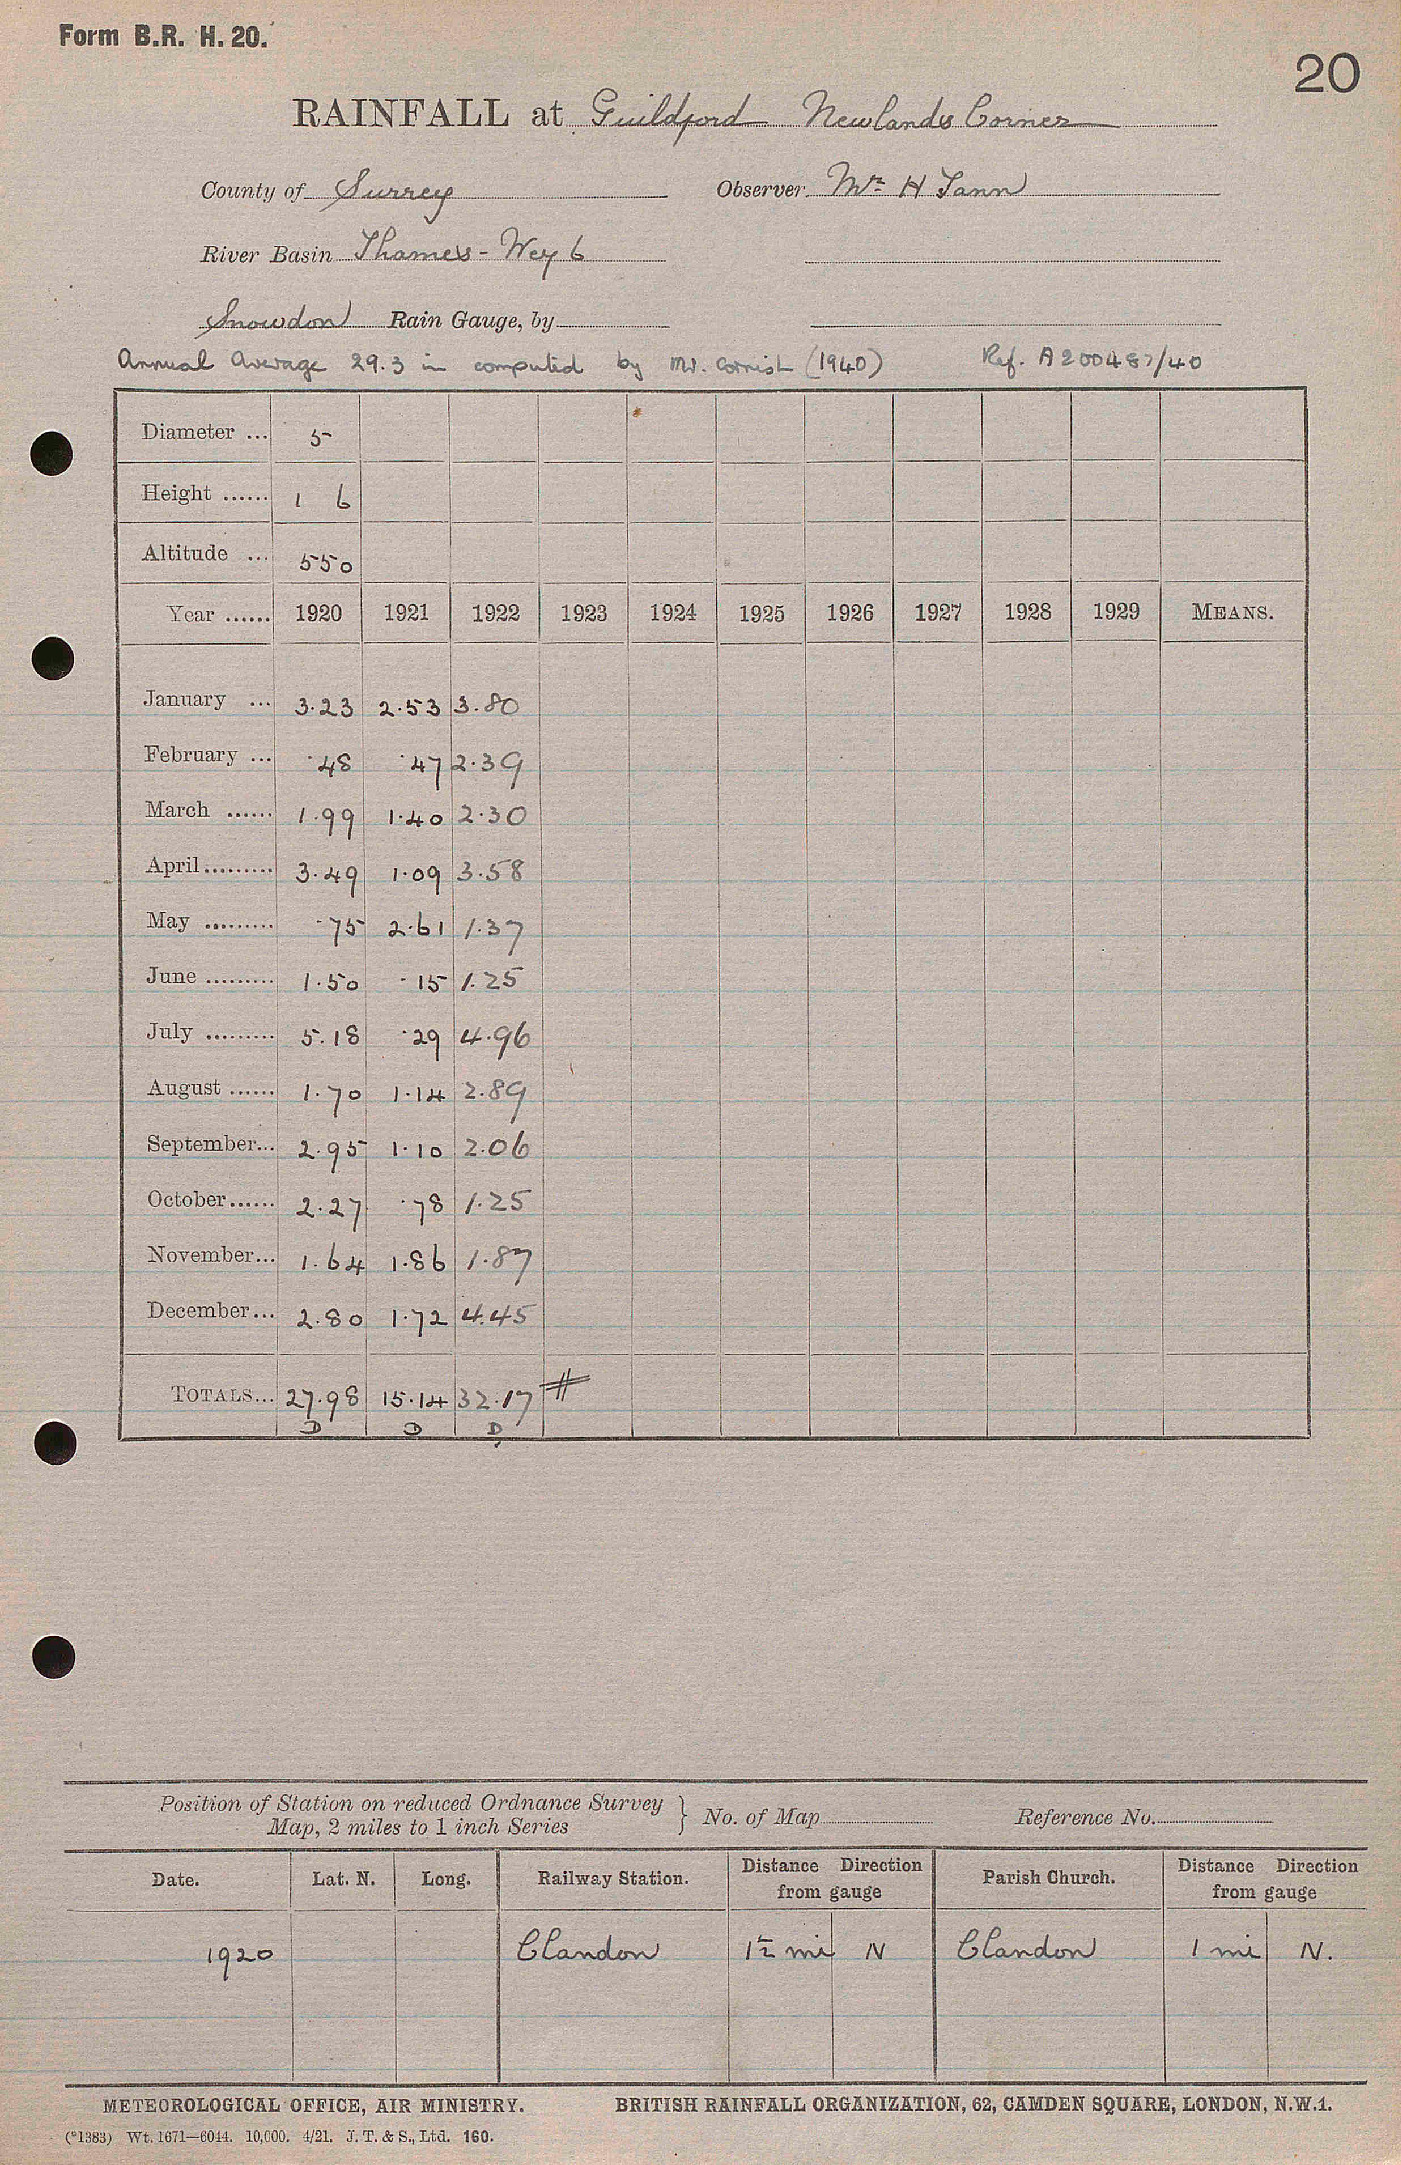 Form B.R. H. 20.
20
RAINFALL at Guildford Newlands Corner
County of Surrey Observer Mr H Tann
River Basin Thames - Wey 6
Snowdon Rain Gauge, by
Annual Average 29.3 in computed by Mr. Cornish (1940) Ref. A200487/40
Diameter ... 5
Height ...... 1 6
Altitude ... 550
Year ...... 1920 1921 1922 1923 1924 1925 1926 1927 1928 1929 MEANS.
January ... 3.23 2.53 3.80
February ... .48 .47 2.39
March ...... 1.99 1.40 2.30
April......... 3.49 1.09 3.58
May ......... .75 2.61 1.37
June ......... 1.50 .15 1.25
July ......... 5.18 .29 4.96
August ...... 1.70 1.14 2.89
September... 2.95 1.10 2.06
October...... 2.27 .78 1.25
November... 1.64 1.86 1.87
December... 2.80 1.72 4.45
TOTALS... 27.98 15.14 32.17 #
D D D
Position of Station on reduced Ordnance Survey
Map, 2 miles to 1 inch Series } No. of Map Reference No.
Date. Lat. N. Long. Railway Station. Distance Direction from gauge Parish Church. Distance Direction from gauge
1920 Clandon 1½ mi N Clandon 1 mi N.
METEOROLOGICAL OFFICE, AIR MINISTRY. BRITISH RAINFALL ORGANIZATION, 62, CAMDEN SQUARE, LONDON, N.W.1.
(*1383) Wt. 1671—6044. 10,000. 4/21. J. T. & S., Ltd. 160.